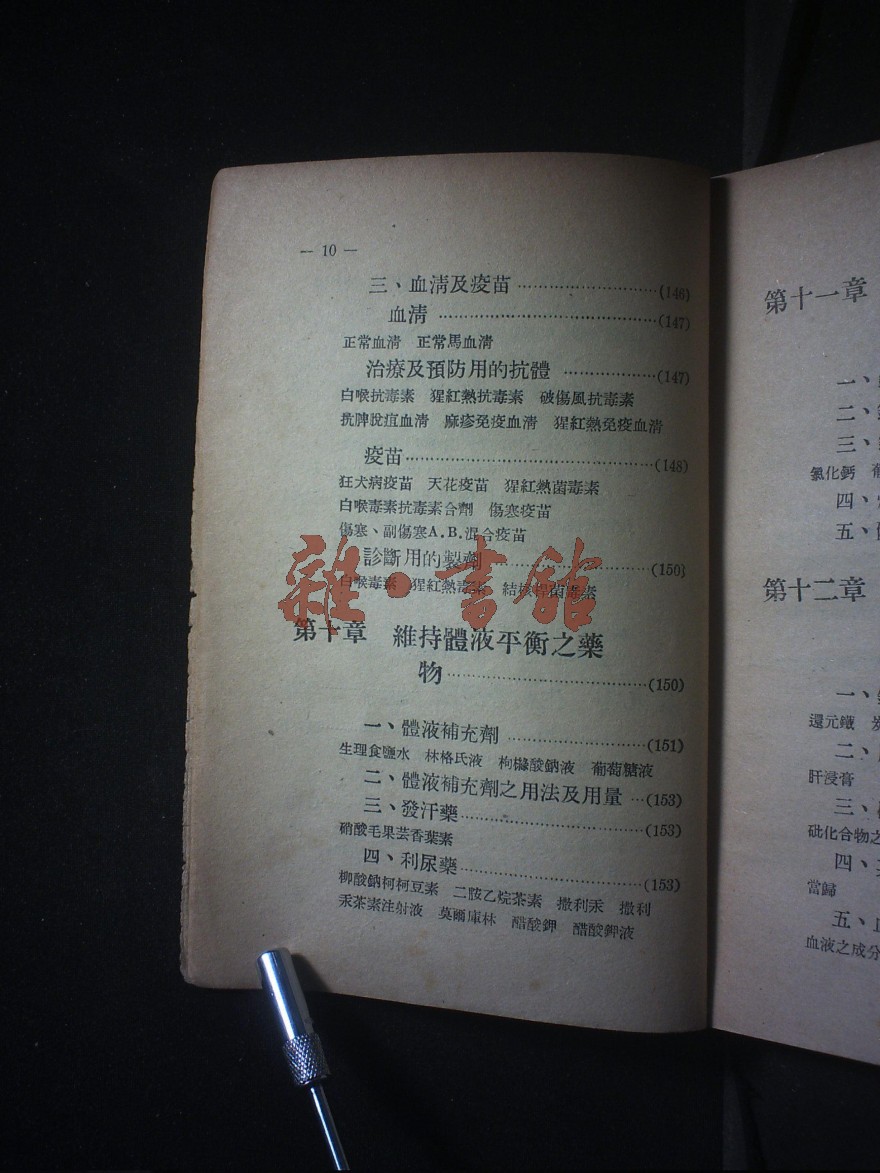 — 10 —
三、血清及疫苗……………………(146)
血清……………………………(147)
正常血清　正常馬血清
治療及預防用的抗體……………(147)
白喉抗毒素　猩紅熱抗毒素　破傷風抗毒素
抗脾脫疽血清　麻疹免疫血清　猩紅熱免疫血清
疫苗………………………………(148)
狂犬病疫苗　天花疫苗　猩紅熱菌毒素
白喉毒素抗毒素合劑　傷寒疫苗
傷寒、副傷寒A.B.混合疫苗
診斷用的製劑……………………(150)
白喉毒素　猩紅熱毒素　結核桿菌毒素
雜·書館
第十章　維持體液平衡之藥
物……………………………(150)
一、體液補充劑……………………(151)
生理食鹽水　林格氏液　枸櫞酸鈉液　葡萄糖液
二、體液補充劑之用法及用量…(153)
三、發汗藥…………………………(153)
硝酸毛果芸香葉素
四、利尿藥…………………………(153)
柳酸鈉柯柯豆素　二胺乙烷茶素　撒利汞　撒利
汞茶素注射液　莫爾庫林　醋酸鉀　醋酸鉀液
第十一章
一、
二、
三、
氯化鈣
四、
五、
第十二章
一、
還元鐵
二、
肝浸膏
三、
砒化合物之
四、
當歸
五、
血液之成分